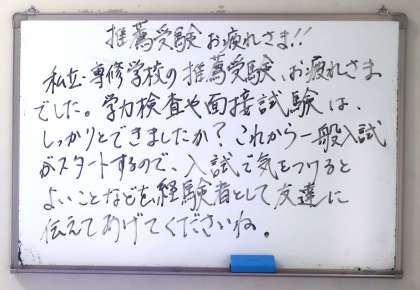 推薦受験お疲れさま!!
私立・専修学校の推薦受験、お疲れさま
でした。学力検査や面接試験は、
しっかりとできましたか？これから一般入試
がスタートするので、入試で気をつけると
よいことなどを経験者として友達に
伝えてあげてくださいね。